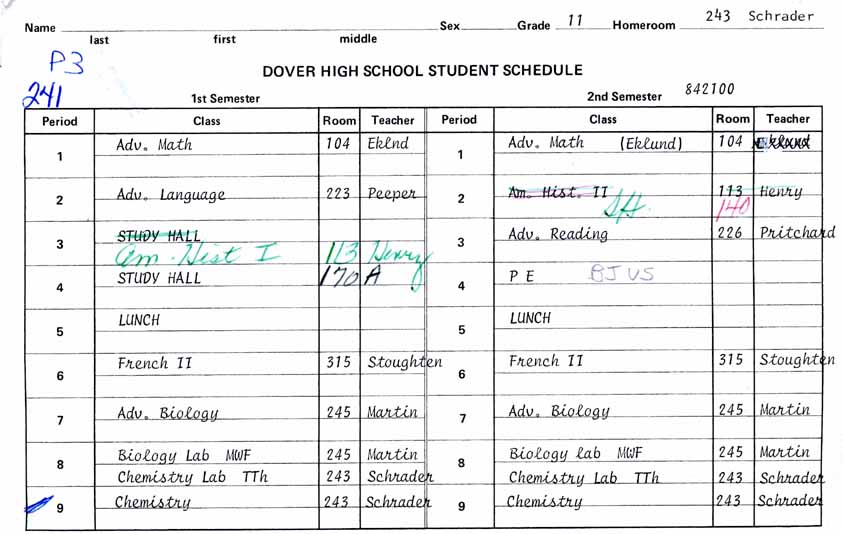 Name Sex Grade 11 Homeroom 243 Schrader
last first middle
P3
DOVER HIGH SCHOOL STUDENT SCHEDULE
241 1st Semester 2nd Semester 842100
Period Class Room Teacher Period Class Room Teacher
1 Adv. Math 104 Eklnd 1 Adv. Math (Eklund) 104
2 Adv. Language 223 Peeper 2 Am. Hist. II 113 Henry
SH. 140
3 STUDY HALL 3 Adv. Reading 226 Pritchard
Am. Hist I 113 Henry
4 STUDY HALL 170 A 4 P E BJ VS
5 LUNCH 5 LUNCH
6 French II 315 Stoughten 6 French II 315 Stoughten
7 Adv. Biology 245 Martin 7 Adv. Biology 245 Martin
8 Biology Lab MWF 245 Martin 8 Biology lab MWF 245 Martin
Chemistry Lab TTh 243 Schrader Chemistry Lab TTh 243 Schrader
9 Chemistry 243 Schrader 9 Chemistry 243 Schrader